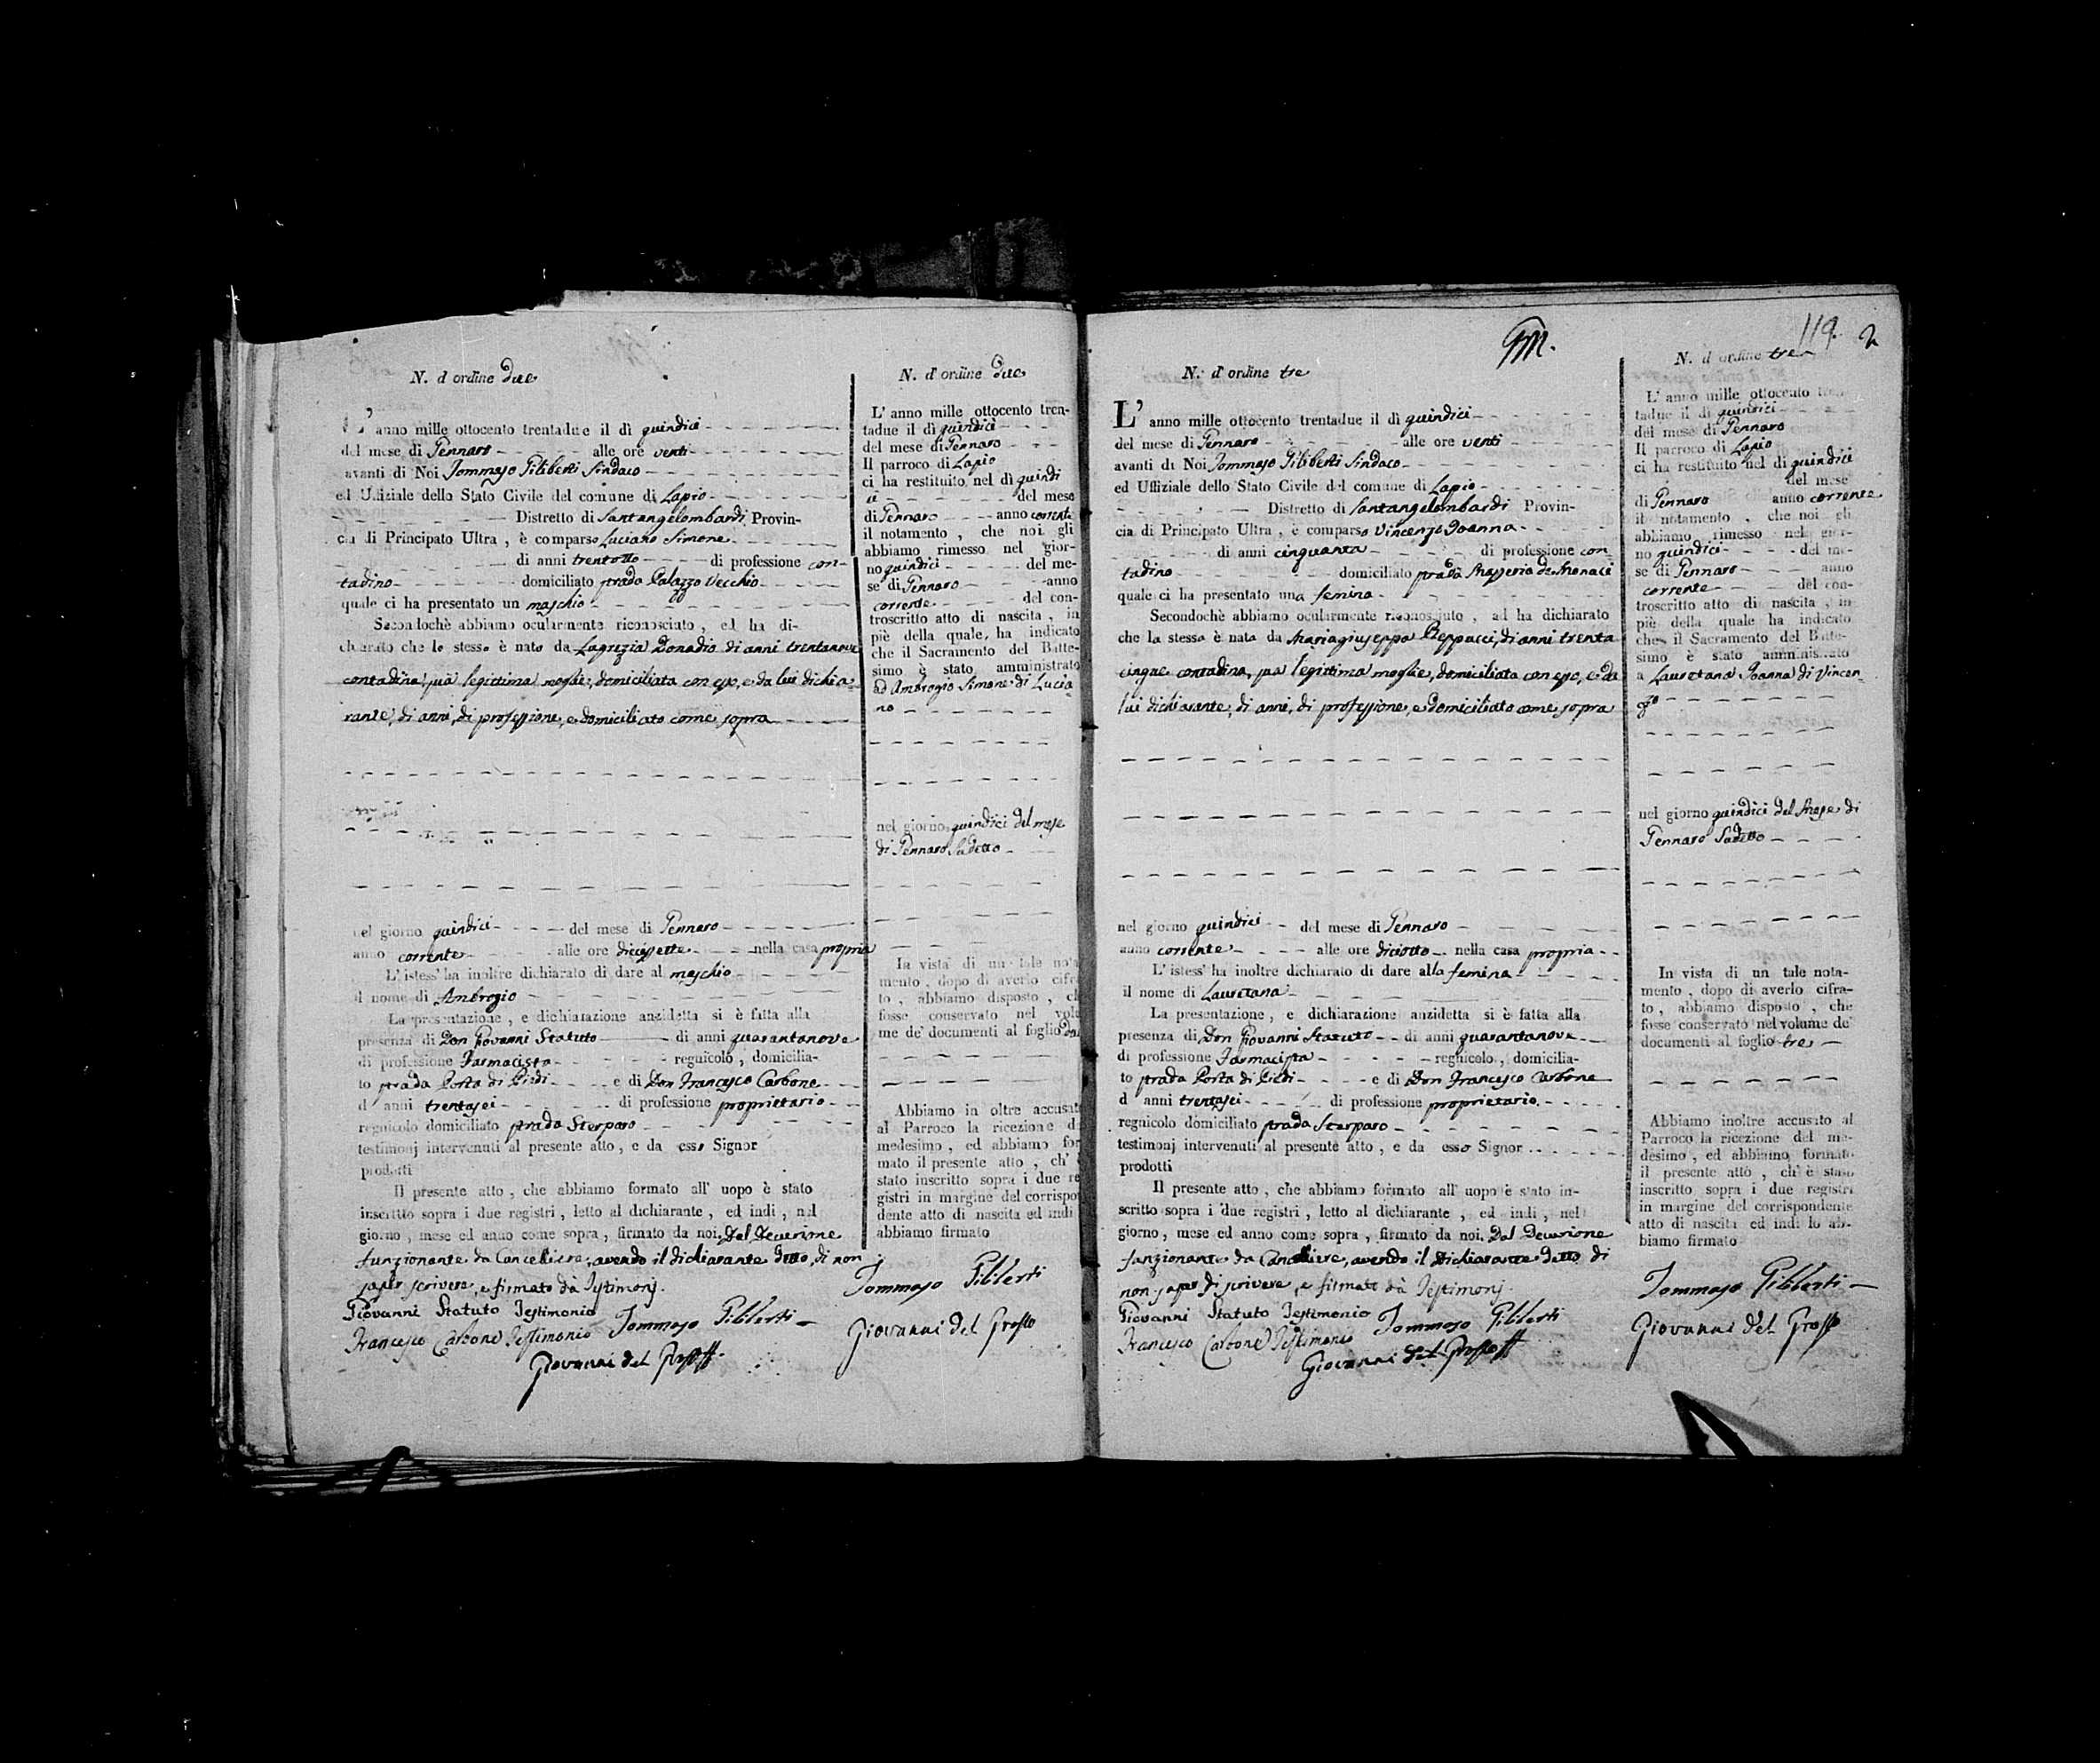 N. d'ordine due
L'anno mille ottocento trentadue il dì quindici
del mese di Gennaro alle ore venti
avanti di Noi Tommaso Giliberti Sindaco
ed Uffiziale dello Stato Civile del comune di Lapio
Distretto di Santangelombardi Provin-
cia di Principato Ultra, è comparso Luciano Simone
di anni trentotto di professione con-
tadino domiciliato strada Palazzo Vecchio
quale ci ha presentato un maschio
Secondochè abbiamo ocularmente riconosciuto, ed ha di-
chiarato che lo stesso è nato da Lagrezia Donadio di anni trentanove
contadina, sua legittima moglie, domiciliata con esso, e da lui dichia
rante, di anni, di professione, e domiciliato come sopra
nel giorno quindici del mese di Gennaro
anno corrente alle ore diciessette nella casa propria
L'istess' ha inoltre dichiarato di dare al maschio
il nome di Ambrogio
La presentazione, e dichiarazione anzidetta si è fatta alla
presenza di Don Giovanni Statuto di anni quarantanove
di professione Farmacista regnicolo, domicilia-
to strada Porta di Piedi e di Don Francesco Carbone
d' anni trentasei di professione proprietario
regnicolo domiciliato strada Sterparo
testimonj intervenuti al presente atto, e da esso Signor
prodotti
Il presente atto, che abbiamo formato all' uopo è stato
inscritto sopra i due registri, letto al dichiarante, ed indi, nel
giorno, mese ed anno come sopra, firmato da noi, Dal Decurione
funzionante da Cancelliere, avendo il dichiarante detto, di non
saper scrivere, e firmato dà Testimonj.
Giovanni Statuto Testimonio Tommaso Giliberti
Francesco Carbone Testimonio
Giovanni del Grosso
N. d'ordine due
L' anno mille ottocento tren-
tadue il dì quindici
del mese di Gennaro
Il parroco di Lapio
ci ha restituito nel dì quindi
ci del mese
di Gennaro anno corrente
il notamento, che noi gli
abbiamo rimesso nel gior-
no quindici del me-
se di Gennaro anno
corrente del con-
troscritto atto di nascita, in
piè della quale, ha indicato
che il Sacramento del Batte-
simo è stato amministrato
ad Ambrogio Simone di Lucia
no
nel giorno quindici del mese
di Gennaro Sudetto
In vista di un tale nota
mento, dopo di averlo cifra
to, abbiamo disposto, ch
fosse conservato nel volu
me de' documenti al foglio due
Abbiamo in oltre accusat
al Parroco la ricezione d
medesimo, ed abbiamo for
mato il presente atto, ch' è
stato inscritto sopra i due re
gistri in margine del corrispo
dente atto di nascita ed indi
abbiamo firmato
Tommaso Giliberti
Giovanni del Grosso
119. 2
N. d'ordine tre
L' anno mille ottocento trentadue il dì quindici
del mese di Gennaro alle ore venti
avanti di Noi Tommaso Giliberti Sindaco
ed Uffiziale dello Stato Civile del comune di Lapio
Distretto di Santangelombardi Provin-
cia di Principato Ultra, è comparso Vincenzo Joanna
di anni cinquanta di professione con
tadino domiciliato strada Masseria de Monaci
quale ci ha presentato una femina
Secondochè abbiamo ocularmente riconosciuto, ad ha dichiarato
che la stessa è nata da Mariagiuseppa Beppucci, di anni trenta
cinque contadina, sua legittima moglie, domiciliata con esso, e da
lui dichiarante, di anni, di professione, e domiciliato come sopra
nel giorno quindici del mese di Gennaro
anno corrente alle ore diciotto nella casa propria
L' istess' ha inoltre dichiarato di dare alla femina
il nome di Lauretana
La presentazione, e dichiarazione anzidetta si è fatta alla
presenza di Don Giovanni Statuto di anni quarantanove
di professione Farmacista regnicolo, domicilia-
to strada Porta di Piedi e di Don Francesco Carbone
d anni trentasei di professione proprietario
regnicolo domiciliato strada Sterparo
testimonj intervenuti al presente atto, e da esso Signor
prodotti
Il presente atto, che abbiamo formato all' uopo è stato in-
scritto sopra i due registri, letto al dichiarante, ed indi, nel
giorno, mese ed anno come sopra, firmato da noi, Dal Decurione
funzionante da Cancelliere, avendo il dichiarante detto di
non saper di scrivere, e firmato dà Testimonj.
Giovanni Statuto Testimonio Tommaso Giliberti
Francesco Carbone Testimonio
Giovanni del Grosso
N. d'ordine tre
L' anno mille ottocento tren-
tadue il dì quindici
del mese di Gennaro
Il parroco di Lapio
ci ha restituito nel di quindici
del mese
di Gennaro anno corrente
il notamento, che noi gli
abbiamo rimesso nel gior-
no quindici del me-
se di Gennaro anno
corrente del con-
troscritto atto di nascita, in
piè della quale ha indicato
che il Sacramento del Batte-
simo è stato amministrato
a Lauretana Joanna di Vincen
zo
nel giorno quindici del Mese di
Gennaro Sudetto
In vista di un tale nota-
mento, dopo di averlo cifra-
to, abbiamo disposto, che
fosse conservato nel volume de'
documenti al foglio tre
Abbiamo inoltre accusato al
Parroco la ricezione del me-
desimo, ed abbiamo formato
il presente atto, ch' è stato
inscritto sopra i due registri
in margine del corrispondente
atto di nascita ed indi lo ab-
biamo firmato
Tommaso Giliberti
Giovanni del Grosso